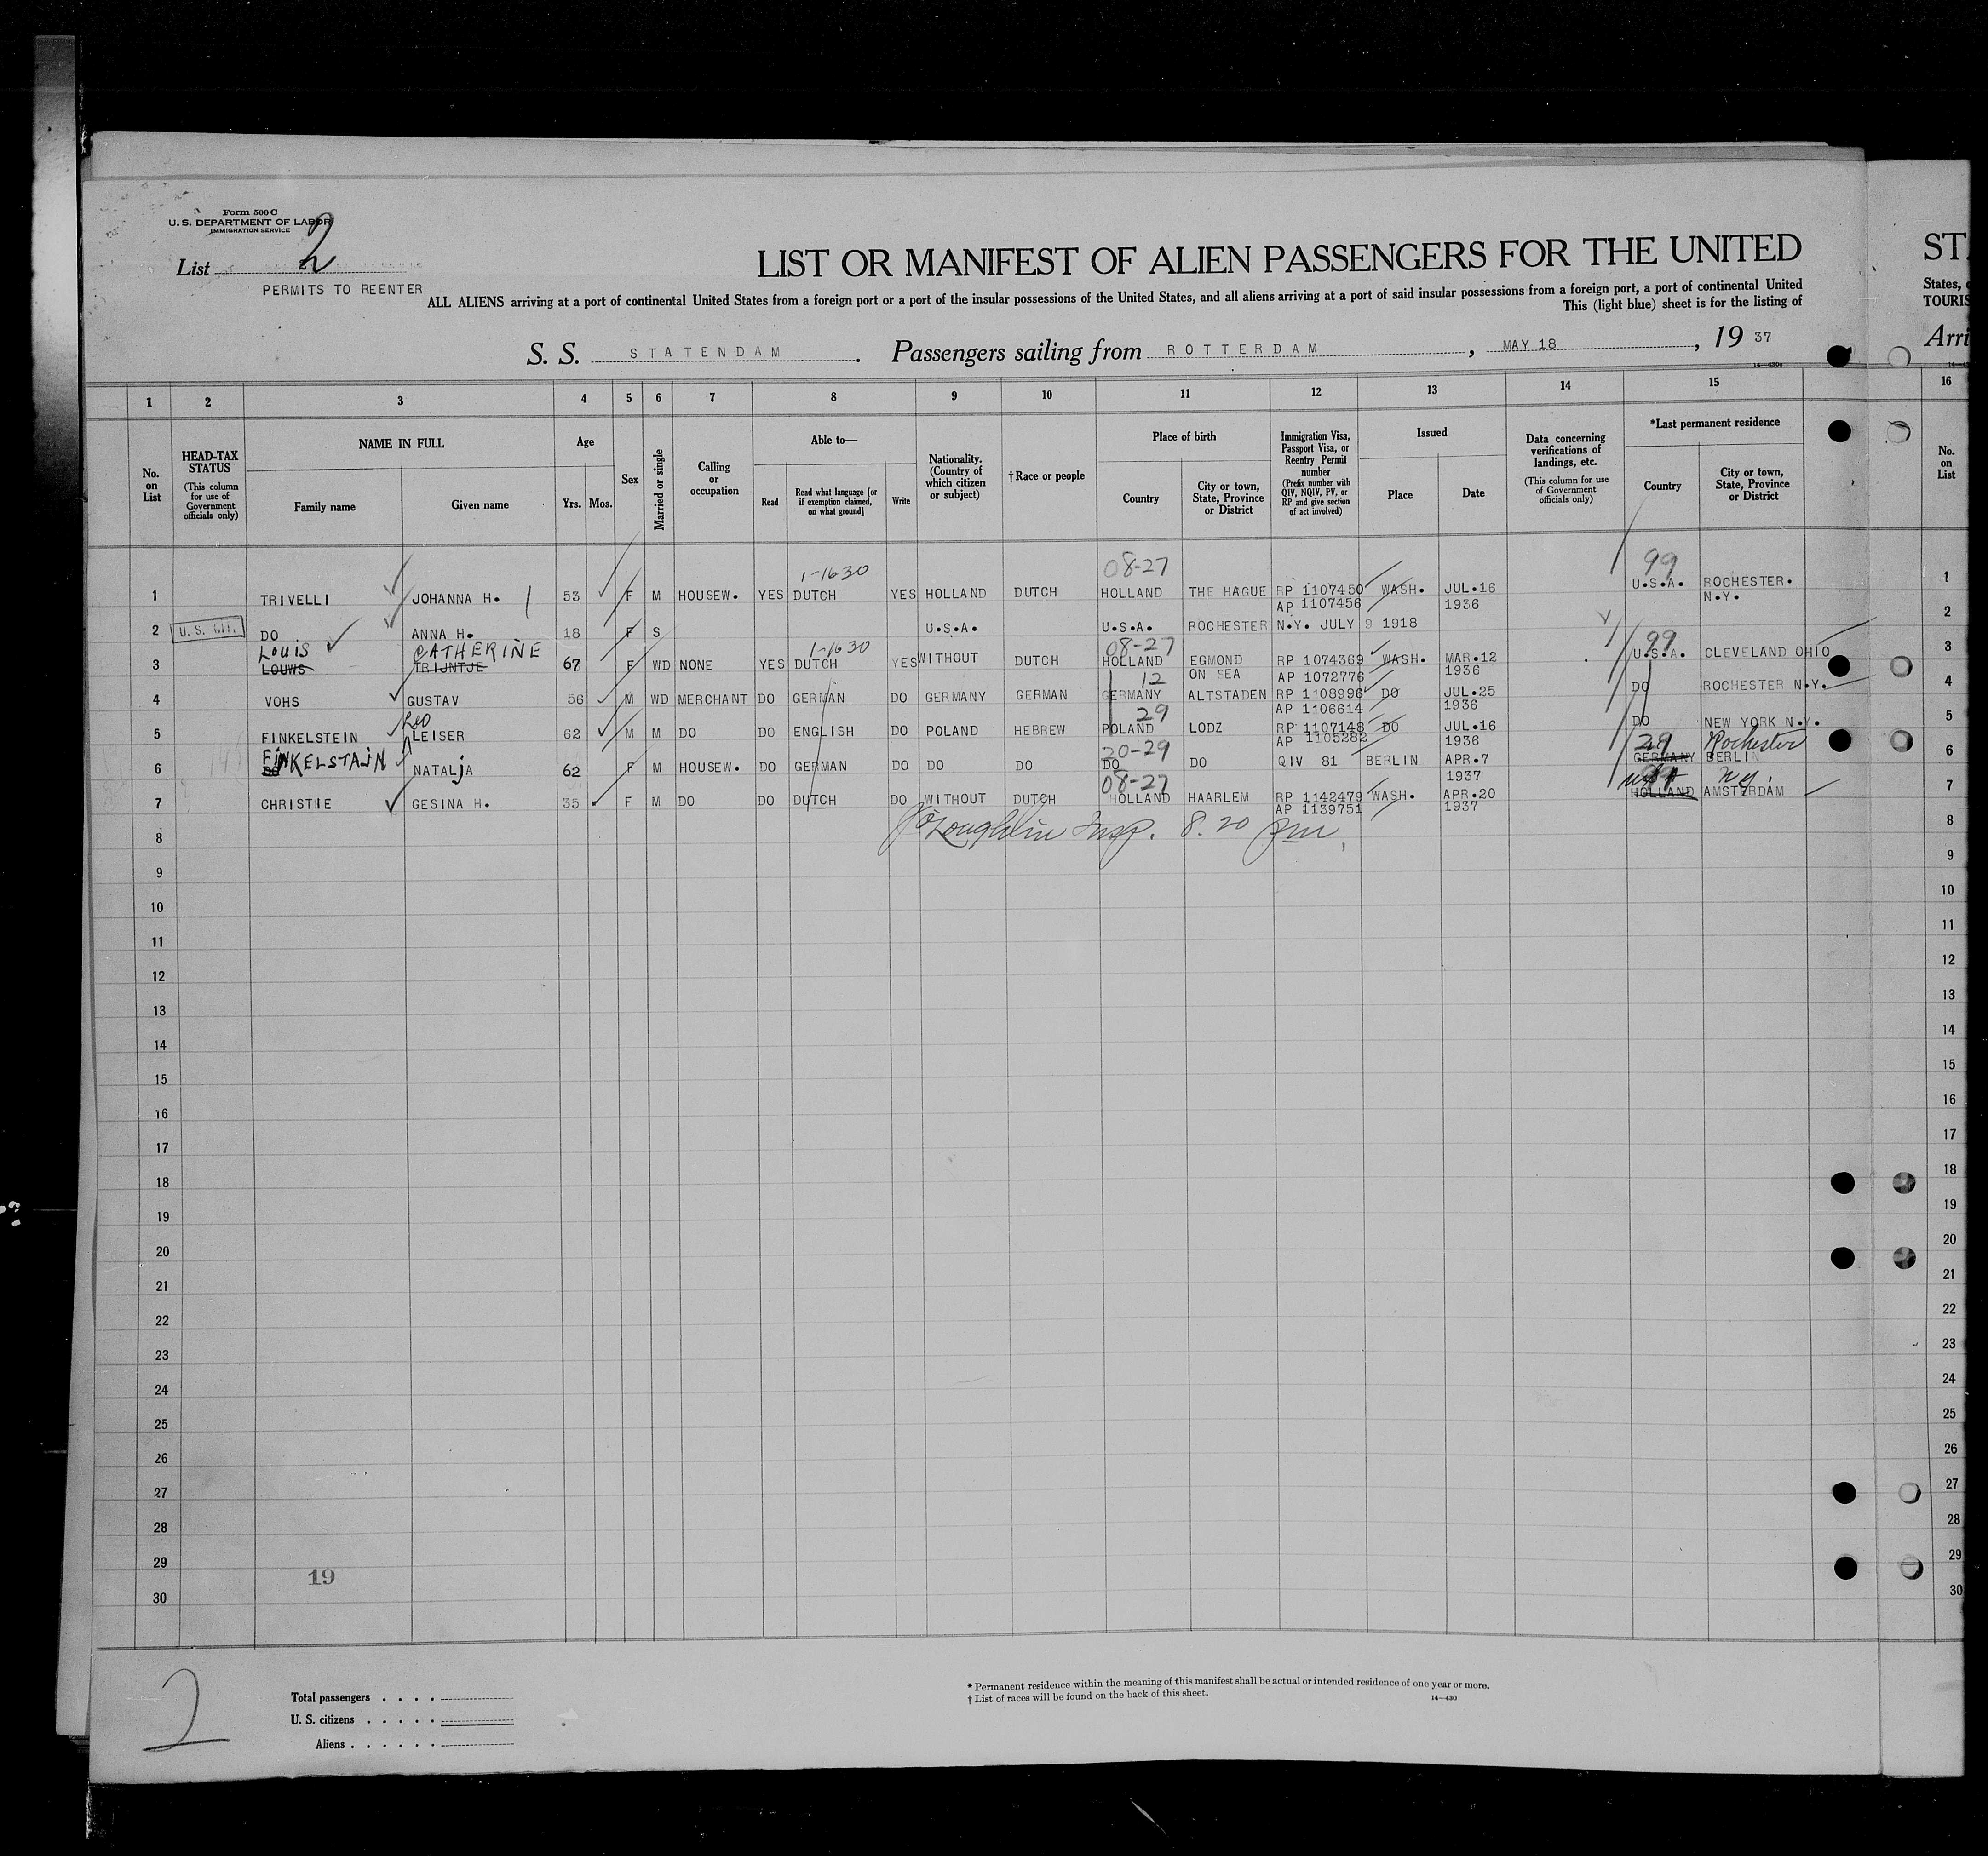 Form 500 C
U. S. DEPARTMENT OF LABOR
IMMIGRATION SERVICE
List 2
PERMITS TO REENTER
LIST OR MANIFEST OF ALIEN PASSENGERS FOR THE UNITED
ST
ALL ALIENS arriving at a port of continental United States from a foreign port or a port of the insular possessions of the United States, and all aliens arriving at a port of said insular possessions from a foreign port, a port of continental United
States,
This (light blue) sheet is for the listing of
TOURIS
S. S. STATENDAM . Passengers sailing from ROTTERDAM , MAY 18 , 19 37
Arri
14—430
1 2 3 4 5 6 7 8 9 10 11 12 13 14 15 16
No. on List
HEAD-TAX STATUS (This column for use of Government officials only)
NAME IN FULL
Family name Given name
Age
Yrs. Mos.
Sex
Married or single
Calling or occupation
Able to—
Read
Read what language [or if exemption claimed, on what ground]
Write
Nationality. (Country of which citizen or subject)
† Race or people
Place of birth
Country
City or town, State, Province or District
Immigration Visa, Passport Visa, or Reentry Permit number (Prefix number with QIV, NQIV, PV, or RP and give section of act involved)
Issued
Place Date
Data concerning verifications of landings, etc. (This column for use of Government officials only)
*Last permanent residence
Country
City or town, State, Province or District
No. on List
1-1630 08-27 99
1 TRIVELLI JOHANNA H. 53 F M HOUSEW. YES DUTCH YES HOLLAND DUTCH HOLLAND THE HAGUE RP 1107450 WASH. JUL.16 U.S.A. ROCHESTER. 1
AP 1107456 1936 N.Y.
2 U. S. CIT. DO ANNA H. 18 F S U.S.A. U.S.A. ROCHESTER N.Y. JULY 9 1918 2
LOUIS CATHERINE 1-1630 08-27 99
3 LOUWS TRIJNTJE 67 F WD NONE YES DUTCH YES WITHOUT DUTCH HOLLAND EGMOND RP 1074369 WASH. MAR.12 U.S.A. CLEVELAND OHIO 3
ON SEA AP 1072776 1936
12
4 VOHS GUSTAV 56 M WD MERCHANT DO GERMAN DO GERMANY GERMAN GERMANY ALTSTADEN RP 1108996 DO JUL.25 DO ROCHESTER N.Y. 4
AP 1106614 1936
Leo 29
5 FINKELSTEIN LEISER 62 M M DO DO ENGLISH DO POLAND HEBREW POLAND LODZ RP 1107148 DO JUL.16 DO NEW YORK N.Y. 5
AP 1105282 1936
FINKELSTAJN 20-29 29 Rochester
6 DO NATALJA 62 F M HOUSEW. DO GERMAN DO DO DO DO DO QIV 81 BERLIN APR.7 GERMANY BERLIN 6
1937
08-27 N.Y.
7 CHRISTIE GESINA H. 35 F M DO DO DUTCH DO WITHOUT DUTCH HOLLAND HAARLEM RP 1142479 WASH. APR.20 HOLLAND AMSTERDAM 7
AP 1139751 1937
8 O'Loughlin Insp. 8.20 pm 8
9 9
10 10
11 11
12 12
13 13
14 14
15 15
16 16
17 17
18 18
19 19
20 20
21 21
22 22
23 23
24 24
25 25
26 26
27 27
28 28
29 29
19
30 30
2
Total passengers . . . .
U. S. citizens . . . . .
Aliens . . . . . .
* Permanent residence within the meaning of this manifest shall be actual or intended residence of one year or more.
† List of races will be found on the back of this sheet.
14—430